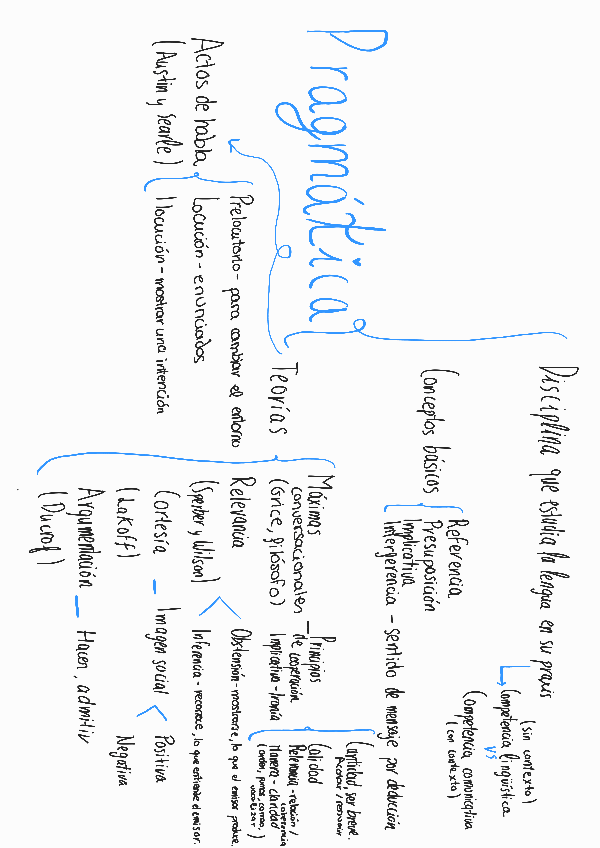 Pragmática
Disciplina que estudia la lengua en su praxis
(sin contexto)
Competencia lingüística
vs
Competencia comunicativa
(con contexto)
Conceptos básicos
Referencia
Presuposición
Implicativa
Interferencia - sentido de mensaje por deducción
Teorías
Máximas
conversacionales
(Grice, filósofo)
Principios
de cooperación
Implicativa - Ironía
Cantidad, ser breve.
Calidad
Relevancia - relación /
coherencia
Manera - claridad
(orden, puntos, comas,
Relevancia
(Sperber y Wilson)
Obstensión - mostrarse, lo que el emisor produce.
Inferencia - reconoce, lo que entiende el emisor.
Cortesía
(Lakoff)
Imagen social
Positiva
Negativa
Argumentación
(Ducrot)
Hacen, admitir
Actos de habla
(Austin y Searle)
Prelocutorio - para cambiar el entorno
Locución - enunciados
Ilocución - mostrar una intención